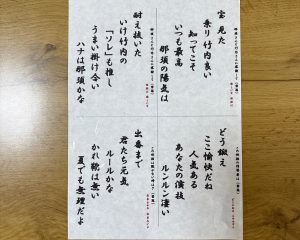 宝見た
乗り竹内良い
知ってこそ
いつも最高
那須の陽気は
耐え抜いた
いけ竹内の
「ソレ」も推し
うまい掛け合い
ハナは那須かな
どう鍛え
ここ愉快だね
人気ある
あなたの演技
ルンルン凄い
出番まで
君たち元気
ルールかな
かれ靴は無い
夏でも無理だよ